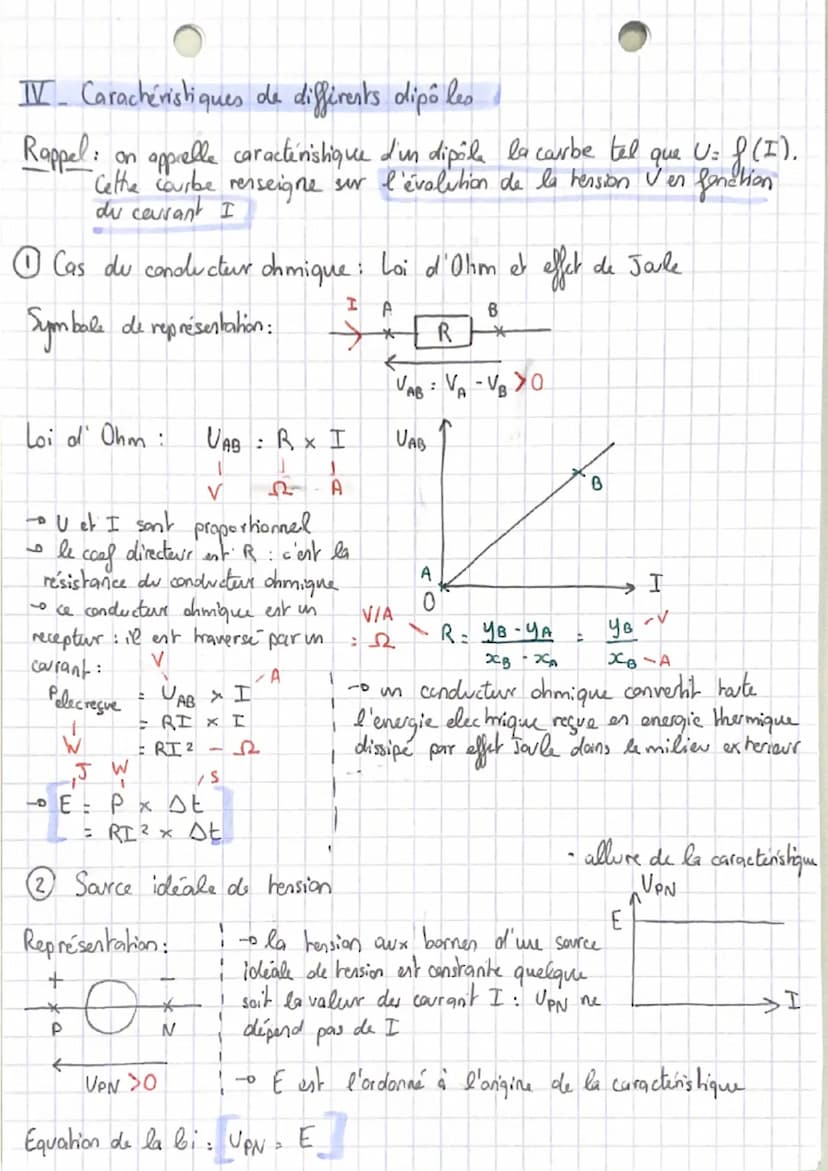 IV - Carachéristiques de différents dipôles
Rappel : on apprelle caractéristique d'un dipôle la courbe tel que U = f(I).
Cette courbe renseigne sur l'évolution de la tension U en fonction
du courant I
① Cas du conducteur ohmique : Loi d'Ohm et effet de Joule
Symbole de représentation :
I A B
R
U_AB = V_A - V_B > 0
Loi d'Ohm : U_AB = R × I
V Ω A
U_AB
B
A
O
I
→ U et I sont proportionnel
→ le coef directeur est R : c'est la
résistance du conducteur ohmique
→ ce conducteur ohmique est un
recepteur : il est traversé par un
courant :
V/A
= Ω
R = y_B - y_A / x_B - x_A = y_B / x_B
V
A
V A
P elec reçue = U_AB × I
= RI × I
W = RI² - Ω
J W s
→ E = P × Δt
= RI² × Δt
→ un conducteur ohmique convertit toute
l'energie electrique reçue en energie thermique
dissipé par effet Joule dans le milieu exterieur
② Source idéale de tension
- allure de la caractéristique
U_PN
E
I
Représentation :
+ -
P N
U_PN > 0
→ la tension aux bornes d'une source
idéale de tension est constante quelque
soit la valeur des courant I : U_PN ne
dépend pas de I
→ E est l'ordonné à l'origine de la caractéristique
Equation de la loi : [U_PN = E]